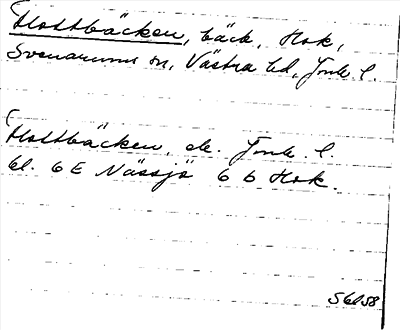 Hostbäcken, bäck, Hok,
Svenarums sn, Västra hd, Jönk. l.
Hostbäcken, ek. Jönk. l.
bl. 6E Nässjö 6 b Hok.